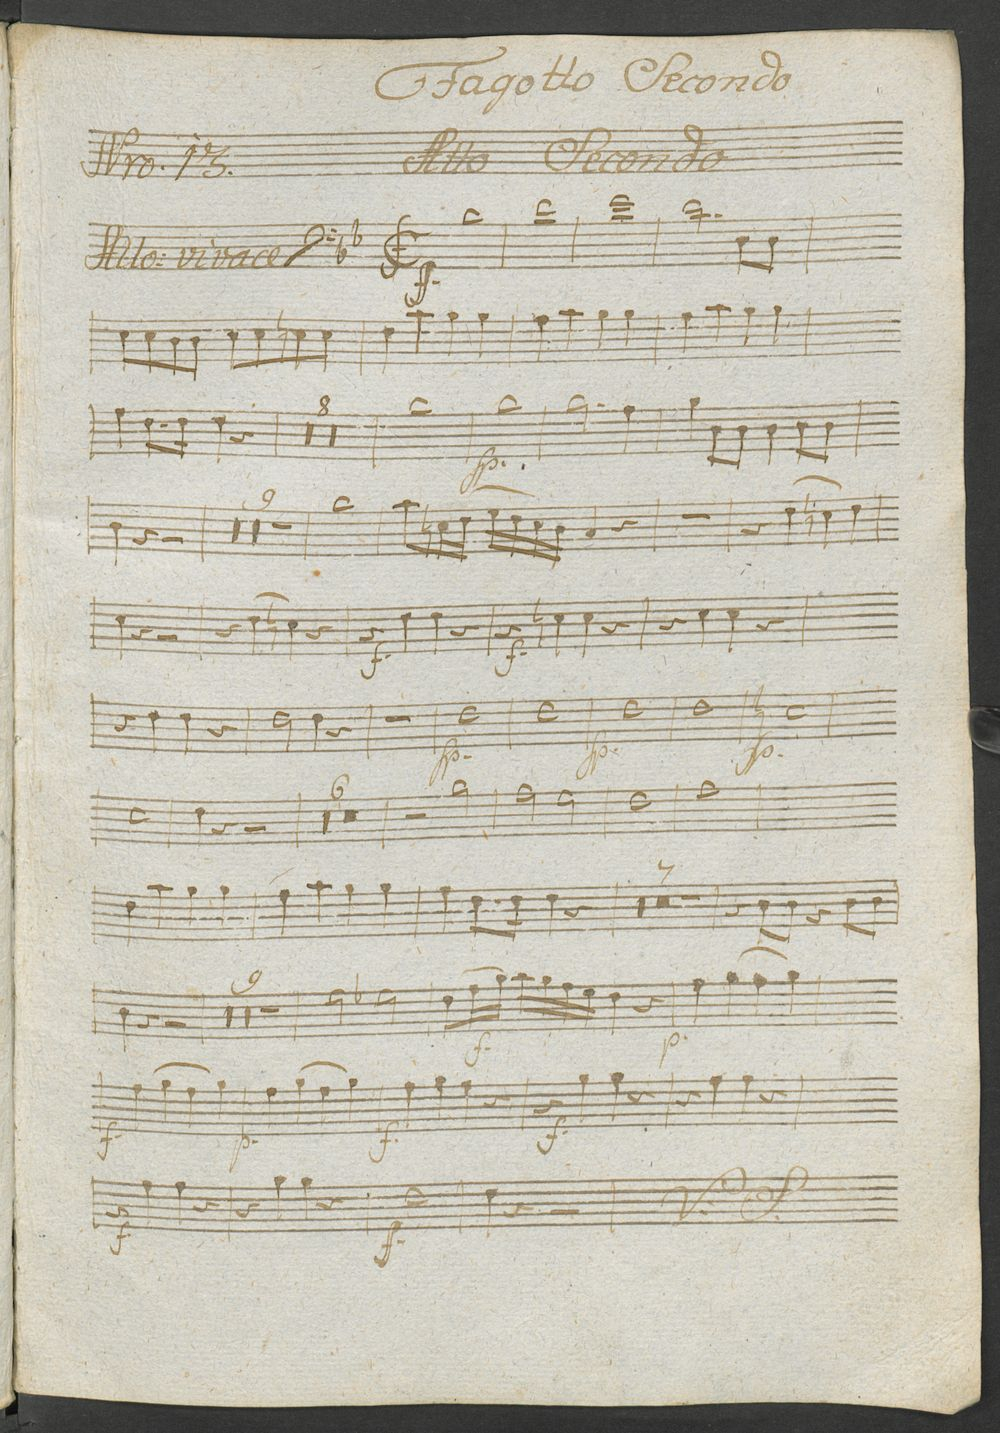 Fagotto Secondo
Nro. 13. Atto Secondo
Allo: vivace
f.
8
fp.
9
f. f.
fp. fp. fp.
6
7
9
f. p.
f. p. f. f.
f. f. V. S.